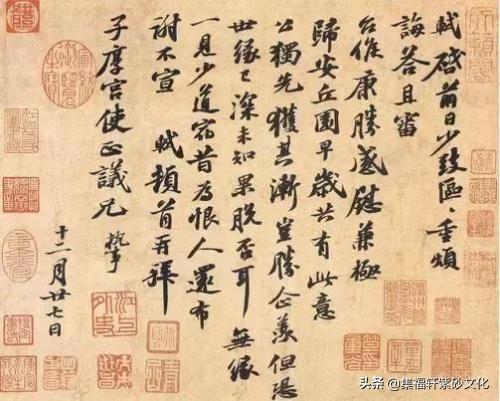 軾啓前日少致區〻重煩
誨答且審
台候康勝感慰兼極
歸安丘園早歲共有此意
公獨先獲其漸豈勝企羨但恐
世緣已深未知果脫否耳無緣
一見少道宿昔為恨人還布
謝不宣 軾頓首再拜
子厚宮使正議兄 執事
十二月廿七日
头条 @集福轩紫砂文化